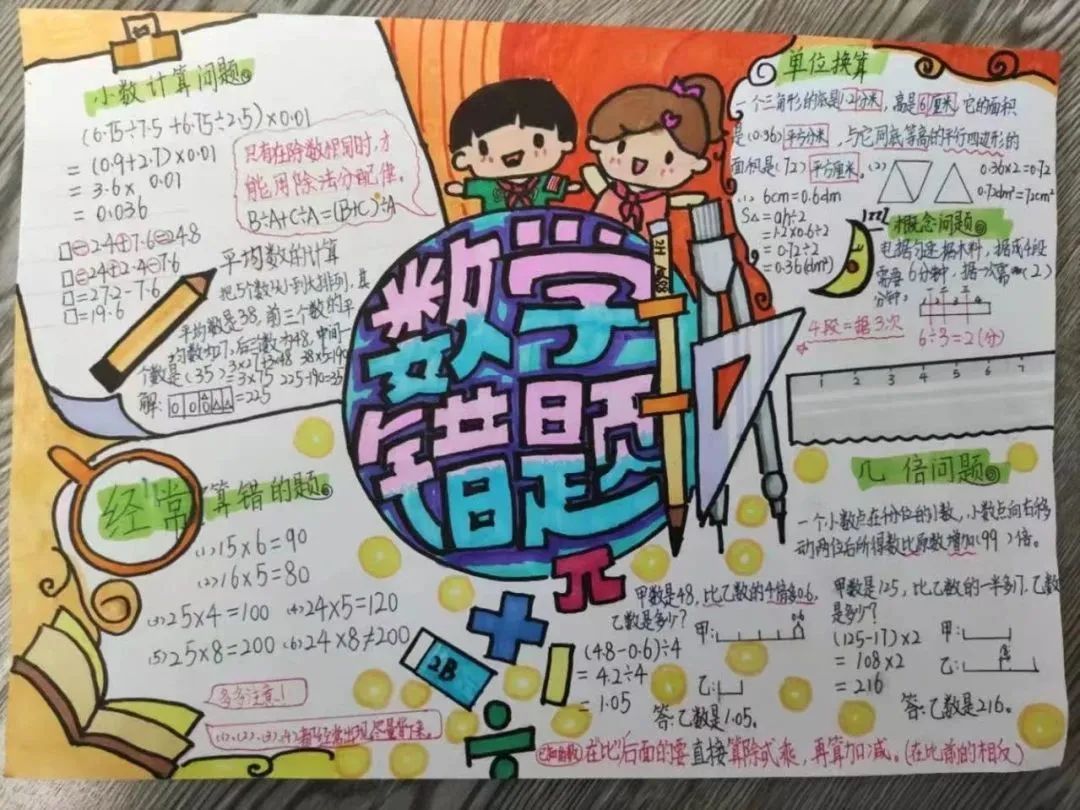 小数计算问题
(6.75÷7.5+6.75÷2.5)×0.01
=(0.9+2.7)×0.01
=3.6×0.01
=0.036
只有在除数相同时,才
能用除法分配律。
B÷A+C÷A=(B+C)÷A
□⊖2.4⊕7.6⊜24.8
□⊜24⊕2.4⊖7.6
□=27.2-7.6
□=19.6
平均数的计算
把5个数从小到大排列,其
平均数是38,前三个数的平
均数为27,后三数为48,中间一
个数是(35)
3×27+3×48
=3×75
=225
38×5=190
225-190=35
解:
数字
错题
2H
单位换算
一个三角形的底是1.2分米,高是6厘米,它的面积
是(0.36)平方分米,与它同底等高的平行四边形的
面积是(72)平方厘米。
(1) 6cm=0.6dm
S△=ah÷2
=1.2×0.6÷2
=0.72÷2
=0.36(dm²)
(2)
0.36×2=0.72
0.72dm²=72cm²
概念问题
电据匀速据木料,据成4段
需要6分钟,据一次需(2)
分钟。
1 2 3 4
4段=据3次
6÷3=2(分)
1 2 3 4 5 6 7
经常算错的题
(1)15×6=90
(2)16×5=80
(3)25×4=100 (4)24×5=120
(5)25×8=200 (6)24×8≠200
多多注意!
(1)、(2)、(3)、(4)都经常出现,尽量背下来。
π
2B
几倍问题
一个小数点在十分位的小数,小数点向右移
动两位后所得数比原数增加(99)倍。
甲数是4.8,比乙数的4倍多0.6,
乙数是多少?
甲:
0.6
(4.8-0.6)÷4
=4.2÷4
=1.05
乙:
答:乙数是1.05。
甲数是125,比乙数的一半多17,乙数
是多少?
(125-17)×2
=108×2
=216
甲:
乙:
答:乙数是216。
在"比"后面的要直接算除或乘,再算加减。(在比前的相反)